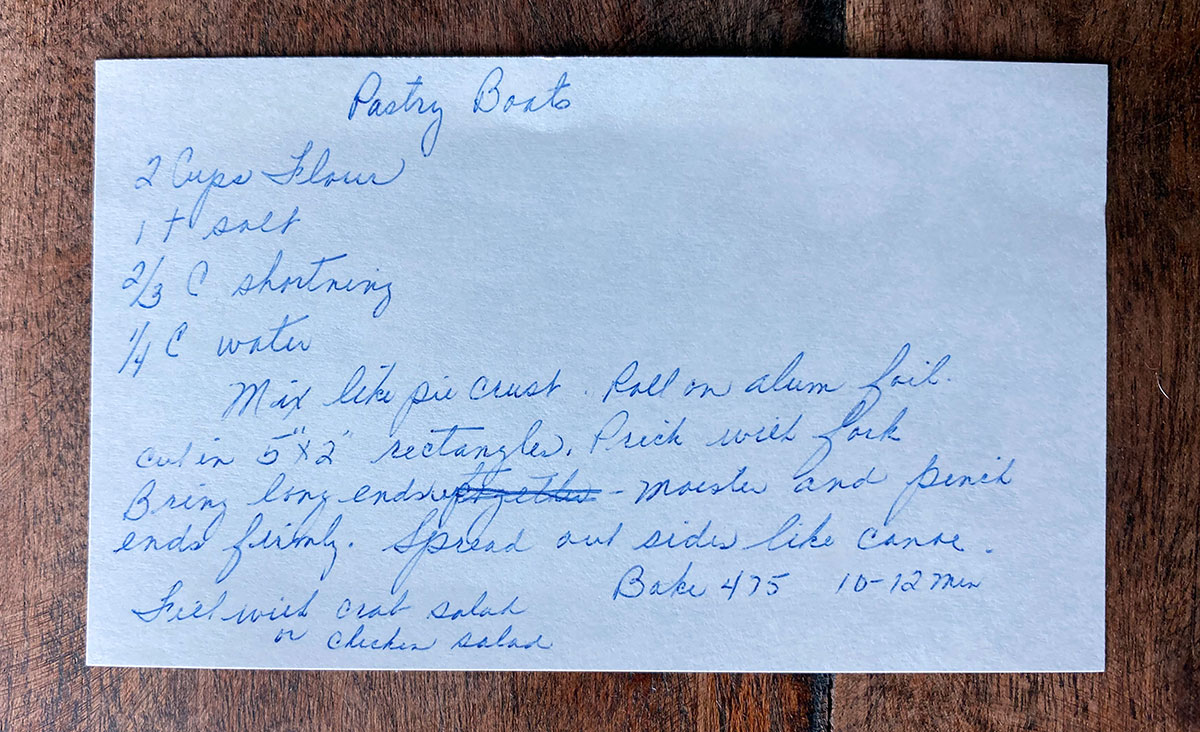 Pastry Boats
2 Cups Flour
1 t salt
2/3 C shortning
1/4 C water
Mix like pie crust. Roll on alum foil.
cut in 5"x2" rectangles. Prick with fork
Bring long ends up together - moisten and pinch
ends firmly. Spread out sides like canoe.
Bake 475 10-12 min
Fill with crab salad
or chicken salad